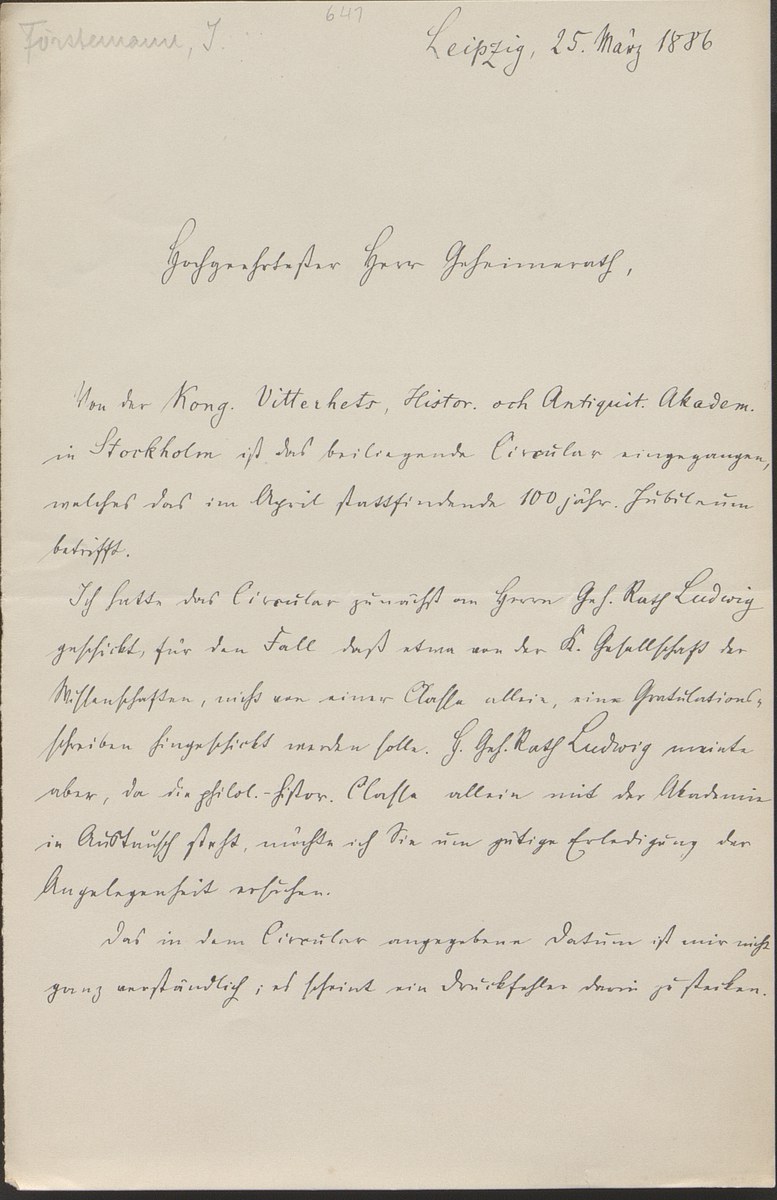 641
Förstemann, J.
Leipzig, 25. März 1886
Hochgeehrtester Herr Geheimerath,
Von der Kong. Vitterhets, Histor. och Antiquit. Akadem.
in Stockholm ist das beiliegende Circular eingegangen,
welches das im April stattfindende 100 jähr. Jubiläum
betrifft.
Ich hatte das Circular zunächst an Herrn Geh. Rath Ludwig
geschickt, für den Fall daß etwa von der K. Gesellschaft der
Wissenschaften, nicht von einer Classe allein, eine Gratulations-
schreiben hingeschickt werden solle. H. Geh. Rath Ludwig meinte
aber, da die philol.-histor. Classe allein mit der Akademie
in Austausch steht, möchte ich Sie um gütige Erledigung der
Angelegenheit ersuchen.
Das in dem Circular angegebene Datum ist mir nicht
ganz verständlich; es scheint ein Druckfehler darin zu stecken.